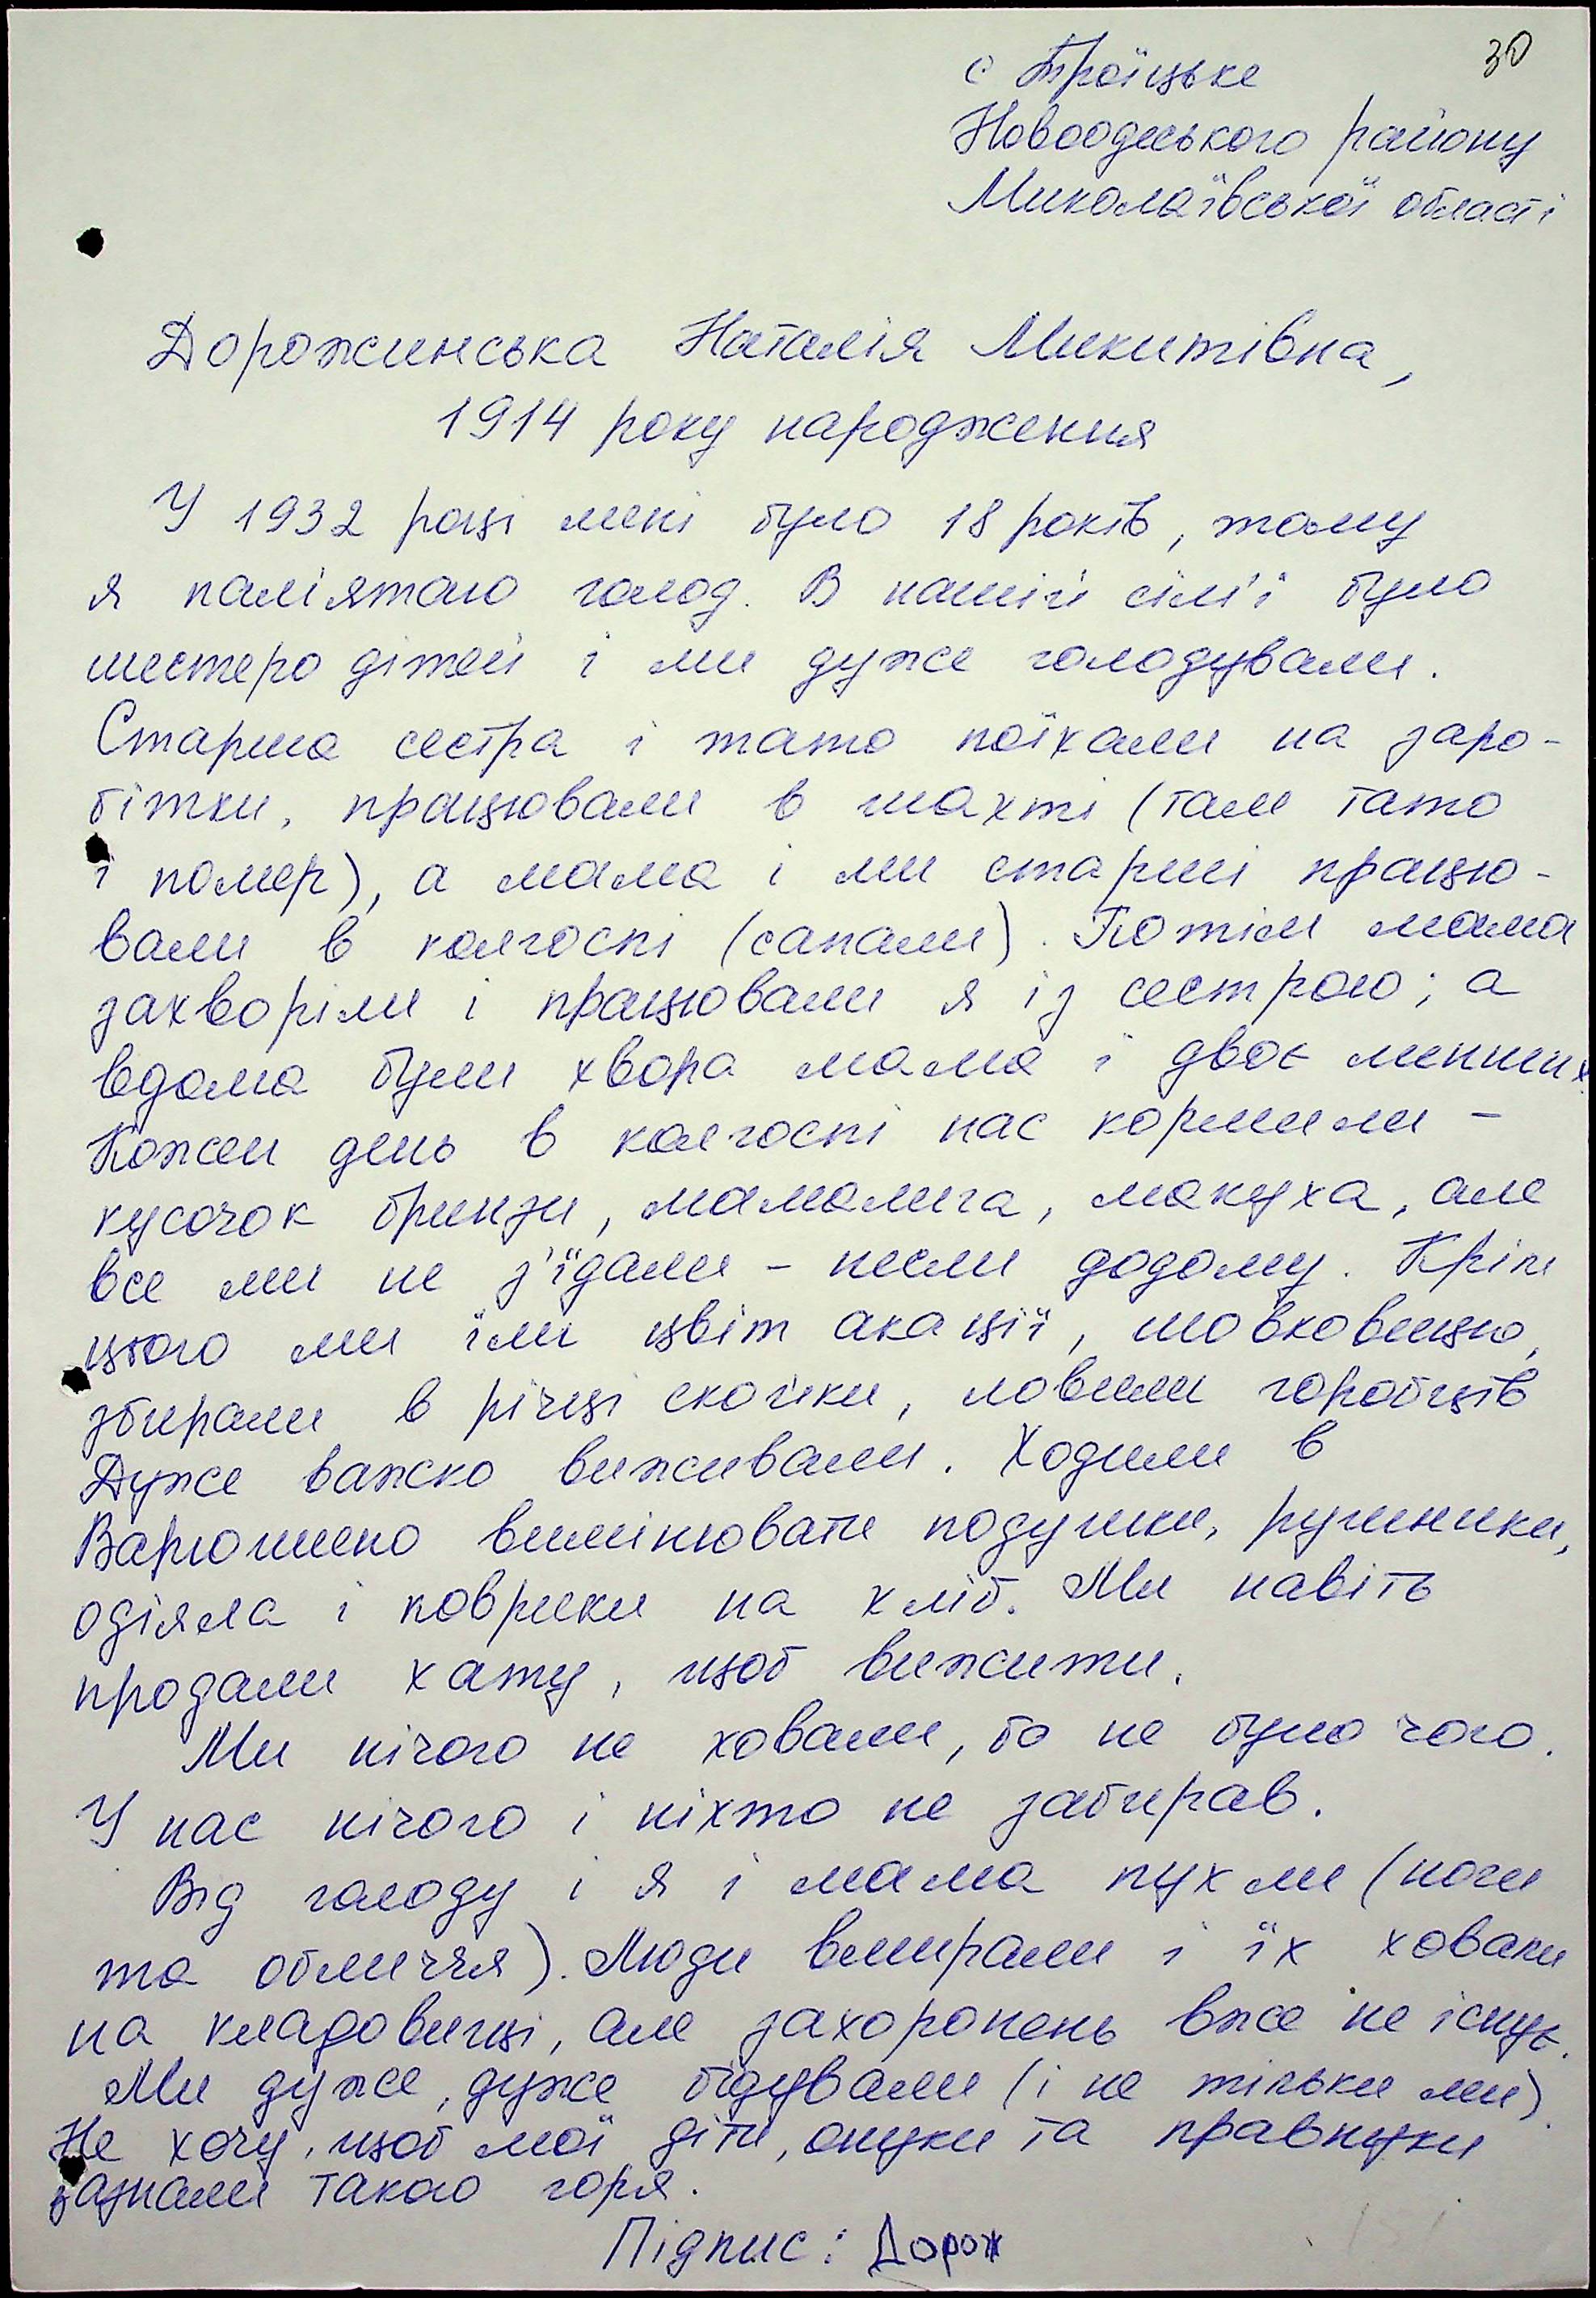 30
с Троїцьке
Новоодеського району
Миколаївської області
Дорожинська Наталія Микитівна,
1914 року народження
У 1932 році мені було 18 років, тому
я пам'ятаю голод. В нашій сім'ї було
шестеро дітей і ми дуже голодували.
Старша сестра і тато поїхали на заро-
бітки, працювали в шахті (там тато
і помер), а мама і ми старші працю-
вали в колгоспі (сапали). Потім мама
захворіли і працювали я із сестрою; а
вдома були хвора мама і двоє менших
Кожен день в колгоспі нас кормили -
кусочок бринзи, мамалига, макуха, але
все ми не з'їдали - несли додому. Крім
цього ми їли цвіт акації, шовковицю,
збирали в річці скойки, ловили горобців
Дуже важко виживали. Ходили в
Варюшено вимінювати подушки, рушники,
одіяла і коврики на хліб. Ми навіть
продали хату, щоб вижити.
Ми нічого не ховали, бо не було чого.
У нас нічого і ніхто не забирав.
Від голоду і я і мама пухли (ноги
та обличчя). Люди вмирали і їх ховали
на кладовищі, але захоронень вже не існує.
Ми дуже, дуже бідували (і не тільки ми).
Не хочу, щоб мої діти, онуки та правнуки
зазнали такого горя.
Підпис: Дорож